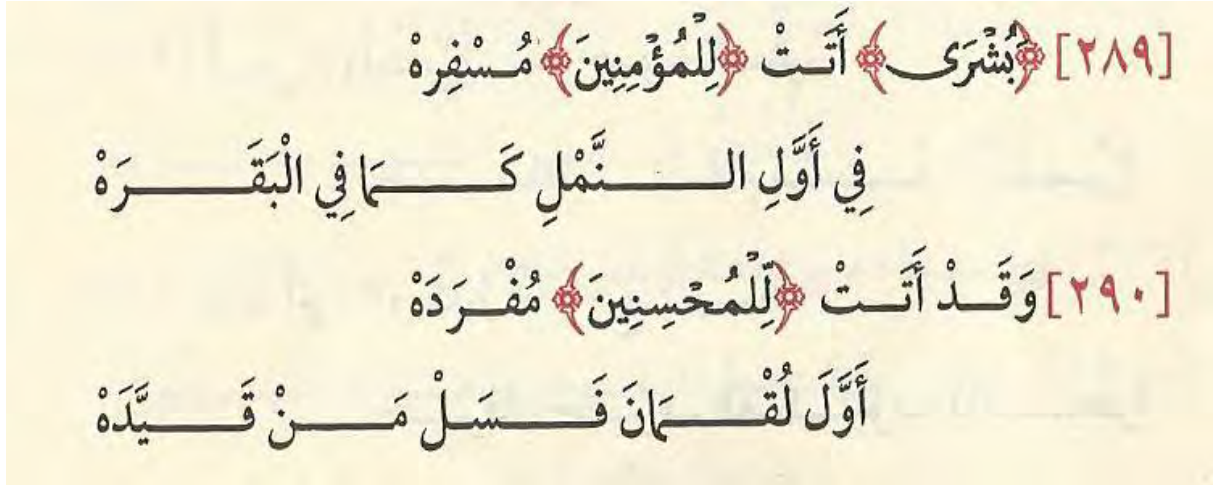 [٢٨٩] ﴿بُشْرَى﴾ أَتَتْ ﴿لِلْمُؤْمِنِينَ﴾ مُسْفِرهْ
فِي أَوَّلِ النَّمْلِ كَمَا فِي الْبَقَرَهْ
[٢٩٠] وَقَدْ أَتَتْ ﴿لِّلْمُحْسِنِينَ﴾ مُفْرَدَهْ
أَوَّلَ لُقْمَانَ فَسَلْ مَنْ قَيَّدَهْ